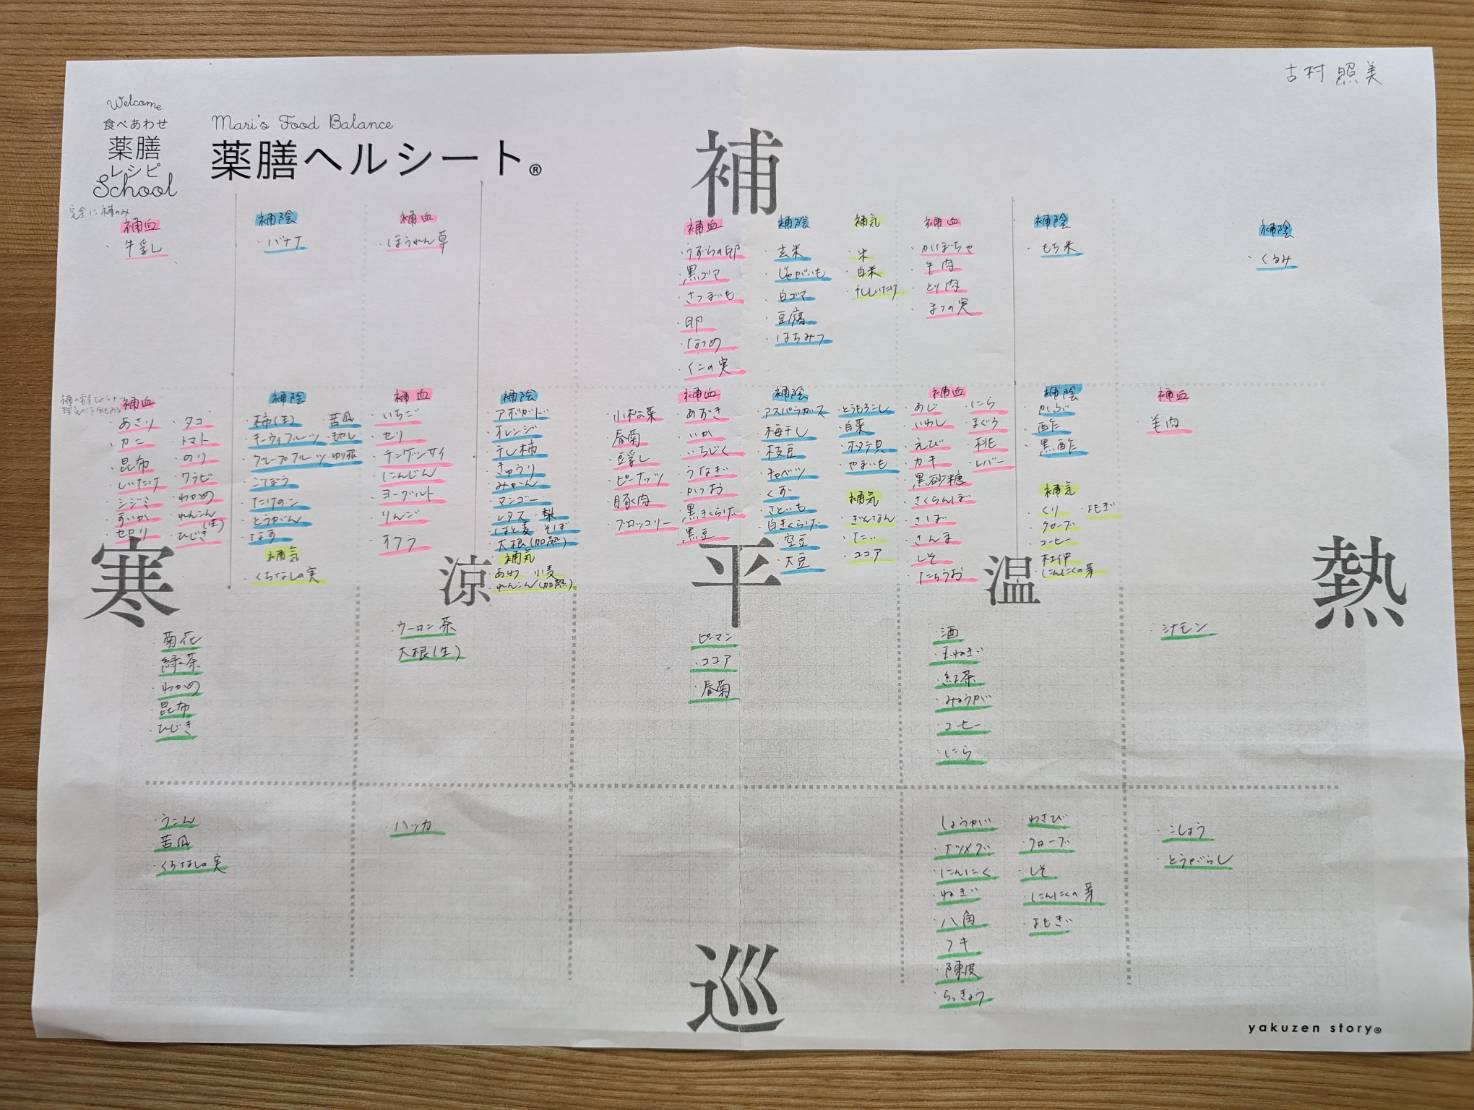 古村 照美
Welcome
食べあわせ
薬膳
レシピ
School
Mari's Food Balance
薬膳ヘルシート®
補
完全に補のみ
補血
・牛乳
補陰
・バナナ
補血
・ほうれん草
補血
・うずらの卵
・黒ゴマ
・さつまいも
・卵
・なつめ
・くこの実
補陰
・玄米
・じゃがいも
・白ゴマ
・豆腐
・はちみつ
補気
・米
・白米
・干ししいたけ
補血
・かぼちゃ
・牛肉
・とり肉
・まつの実
補陰
・もち米
補陰
・くるみ
補血
あさり
カニ
昆布
しいたけ
シジミ
すいか
セロリ
タコ
トマト
のり
ワラビ
わかめ
れんこん(生)
ひじき
補陰
・柿(生)
・キーウィフルーツ
・グレープフルーツ
・ごぼう
・たけのこ
・とうがん
・なす
苦瓜
補気
・くちなしの実
補血
・いちご
・セリ
・チンゲンサイ
・にんじん
・ヨーグルト
・りんご
・オクラ
補陰
アボガド
オレンジ
干し柿
きゅうり
みかん
マンゴー
レタス 梨
はと麦 そば
大根(加熱)
補気
あわ 小麦
れんこん(加熱)
小松菜
春菊
豆乳
ピーナッツ
豚肉
ブロッコリー
補血
あずき
いか
いちじく
うなぎ
かつお
黒きくらげ
黒豆
補陰
アスパラガス
梅干し
枝豆
キャベツ
くず
さといも
白きくらげ
空豆
大豆
とうもろこし
白菜
ホタテ貝
やまいも
補気
ぎんなん
たい
ココア
補血
あじ
いわし
えび
カキ
黒砂糖
さくらんぼ
さば
さんま
しそ
たちうお
・にら
まぐろ
・桃
・レバー
補陰
からし
酢
黒酢
補気
くり
クローブ
コーヒー
杜仲
にんにくの芽
よもぎ
補血
羊肉
寒
涼
平
温
熱
・菊花
・緑茶
・わかめ
・昆布
・ひじき
・ウーロン茶
・大根(生)
・ピーマン
・ココア
・春菊
・酒
・玉ねぎ
・紅茶
・みょうが
・コーヒー
・にら
・シナモン
・うこん
・苦瓜
・くちなしの実
・ハッカ
・しょうが
・ナツメグ
・にんにく
・ねぎ
・八角
・フキ
・陳皮
・らっきょう
・わさび
・クローブ
・しそ
・にんにくの芽
・よもぎ
・こしょう
・とうがらし
巡
yakuzen story®